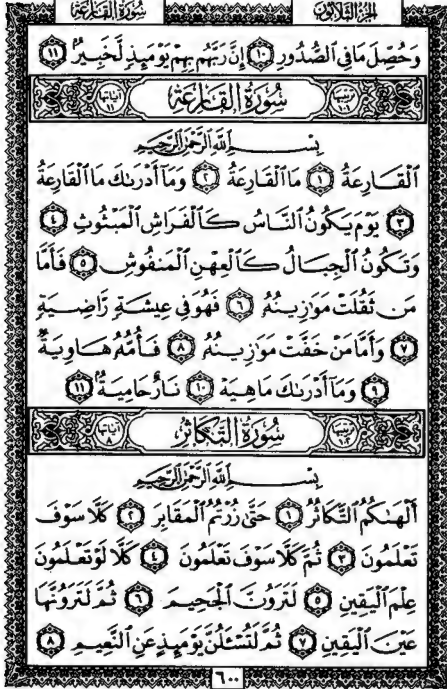 سُورَةُ القَارِعَةِ الجُزْءُ الثَّلَاثُونَ
وَحُصِّلَ مَا فِى ٱلصُّدُورِ ١٠ إِنَّ رَبَّهُم بِهِمْ يَوْمَئِذٍ لَّخَبِيرٌۢ ١١
سُورَةُ القَارِعَةِ
بِسْمِ ٱللَّهِ ٱلرَّحْمَٰنِ ٱلرَّحِيمِ
ٱلْقَارِعَةُ ١ مَا ٱلْقَارِعَةُ ٢ وَمَآ أَدْرَىٰكَ مَا ٱلْقَارِعَةُ
٣ يَوْمَ يَكُونُ ٱلنَّاسُ كَٱلْفَرَاشِ ٱلْمَبْثُوثِ ٤
وَتَكُونُ ٱلْجِبَالُ كَٱلْعِهْنِ ٱلْمَنفُوشِ ٥ فَأَمَّا
مَن ثَقُلَتْ مَوَٰزِينُهُۥ ٦ فَهُوَ فِى عِيشَةٍ رَّاضِيَةٍ
٧ وَأَمَّا مَنْ خَفَّتْ مَوَٰزِينُهُۥ ٨ فَأُمُّهُۥ هَاوِيَةٌ
٩ وَمَآ أَدْرَىٰكَ مَا هِيَهْ ١٠ نَارٌ حَامِيَةٌۢ ١١
سُورَةُ التَّكَاثُرِ
بِسْمِ ٱللَّهِ ٱلرَّحْمَٰنِ ٱلرَّحِيمِ
أَلْهَىٰكُمُ ٱلتَّكَاثُرُ ١ حَتَّىٰ زُرْتُمُ ٱلْمَقَابِرَ ٢ كَلَّا سَوْفَ
تَعْلَمُونَ ٣ ثُمَّ كَلَّا سَوْفَ تَعْلَمُونَ ٤ كَلَّا لَوْ تَعْلَمُونَ
عِلْمَ ٱلْيَقِينِ ٥ لَتَرَوُنَّ ٱلْجَحِيمَ ٦ ثُمَّ لَتَرَوُنَّهَا
عَيْنَ ٱلْيَقِينِ ٧ ثُمَّ لَتُسْـَٔلُنَّ يَوْمَئِذٍ عَنِ ٱلنَّعِيمِ ٨
٦٠٠